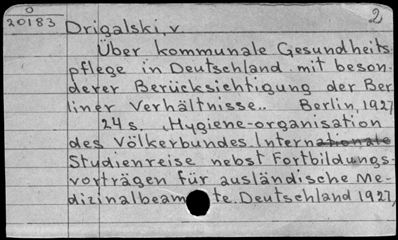 O
20183
2
Drigalski, v.
Über kommunale Gesundheits
pflege in Deutschland mit beson
derer Berücksichtigung der Ber
liner Verhältnisse.. Berlin, 1927
24 s. "Hygiene-organisation
des Völkerbundes Internationale
Studienreise nebst Fortbildungs-
vorträgen für ausländische Me-
dizinalbeamte. Deutschland 1927,